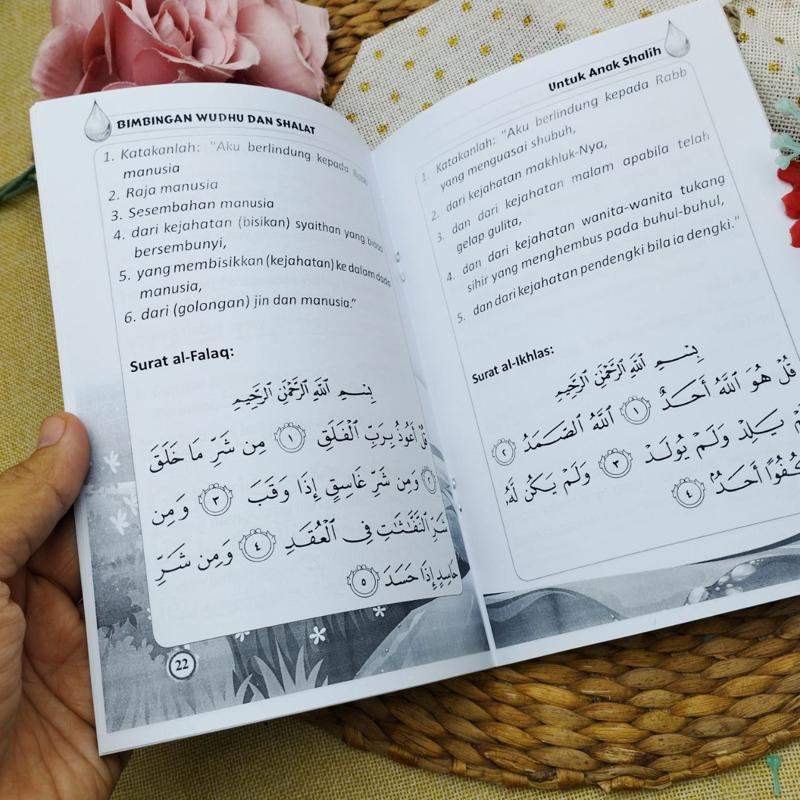 BIMBINGAN WUDHU DAN SHALAT
1. Katakanlah: "Aku berlindung kepada Rabb
manusia
2. Raja manusia
3. Sesembahan manusia
4. dari kejahatan (bisikan) syaithan yang biasa
bersembunyi,
5. yang membisikkan (kejahatan) ke dalam dada
manusia,
6. dari (golongan) jin dan manusia."
Surat al-Falaq:
بِسْمِ اللَّهِ الرَّحْمَٰنِ الرَّحِيمِ
قُلْ أَعُوذُ بِرَبِّ الْفَلَقِ ١ مِن شَرِّ مَا خَلَقَ
٢ وَمِن شَرِّ غَاسِقٍ إِذَا وَقَبَ ٣ وَمِن
شَرِّ النَّفَّٰثَٰتِ فِي الْعُقَدِ ٤ وَمِن شَرِّ
حَاسِدٍ إِذَا حَسَدَ ٥
22
Untuk Anak Shalih
1. Katakanlah: "Aku berlindung kepada Rabb
yang menguasai shubuh,
2. dari kejahatan makhluk-Nya,
3. dan dari kejahatan malam apabila telah
gelap gulita,
4. dan dari kejahatan wanita-wanita tukang
sihir yang menghembus pada buhul-buhul,
5. dan dari kejahatan pendengki bila ia dengki."
Surat al-Ikhlas:
بِسْمِ اللَّهِ الرَّحْمَٰنِ الرَّحِيمِ
قُلْ هُوَ اللَّهُ أَحَدٌ ١ اللَّهُ الصَّمَدُ ٢
يَلِدْ وَلَمْ يُولَدْ ٣ وَلَمْ يَكُن لَّهُ
كُفُوًا أَحَدٌ ٤